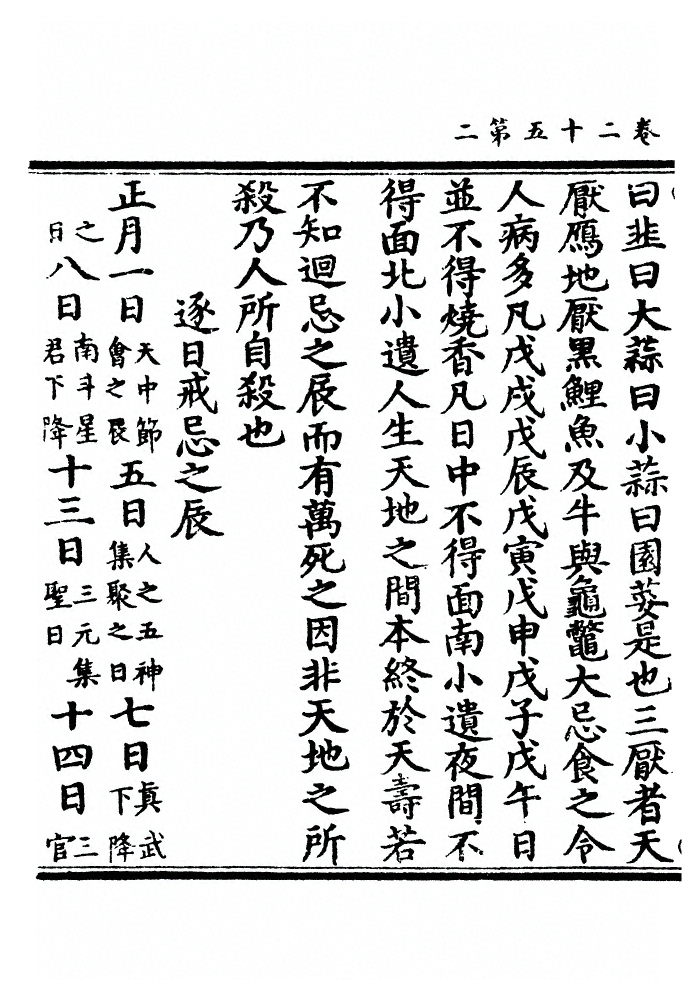 卷二十五第二
曰韭曰大蒜曰小蒜曰園荽是也三厭者天
厭鴈地厭黑鯉魚及牛與龜鼈大忌食之令
人病多凡戊戌戊辰戊寅戊申戊子戊午日
並不得燒香凡日中不得面南小遺夜間不
得面北小遺人生天地之間本終於天壽若
不知迴忌之辰而有萬死之因非天地之所
殺乃人所自殺也
逐日戒忌之辰
正月一日天中節會之辰五日人之五神集聚之日七日眞武下降
之日八日南斗星君下降十三日三元集聖日十四日三官